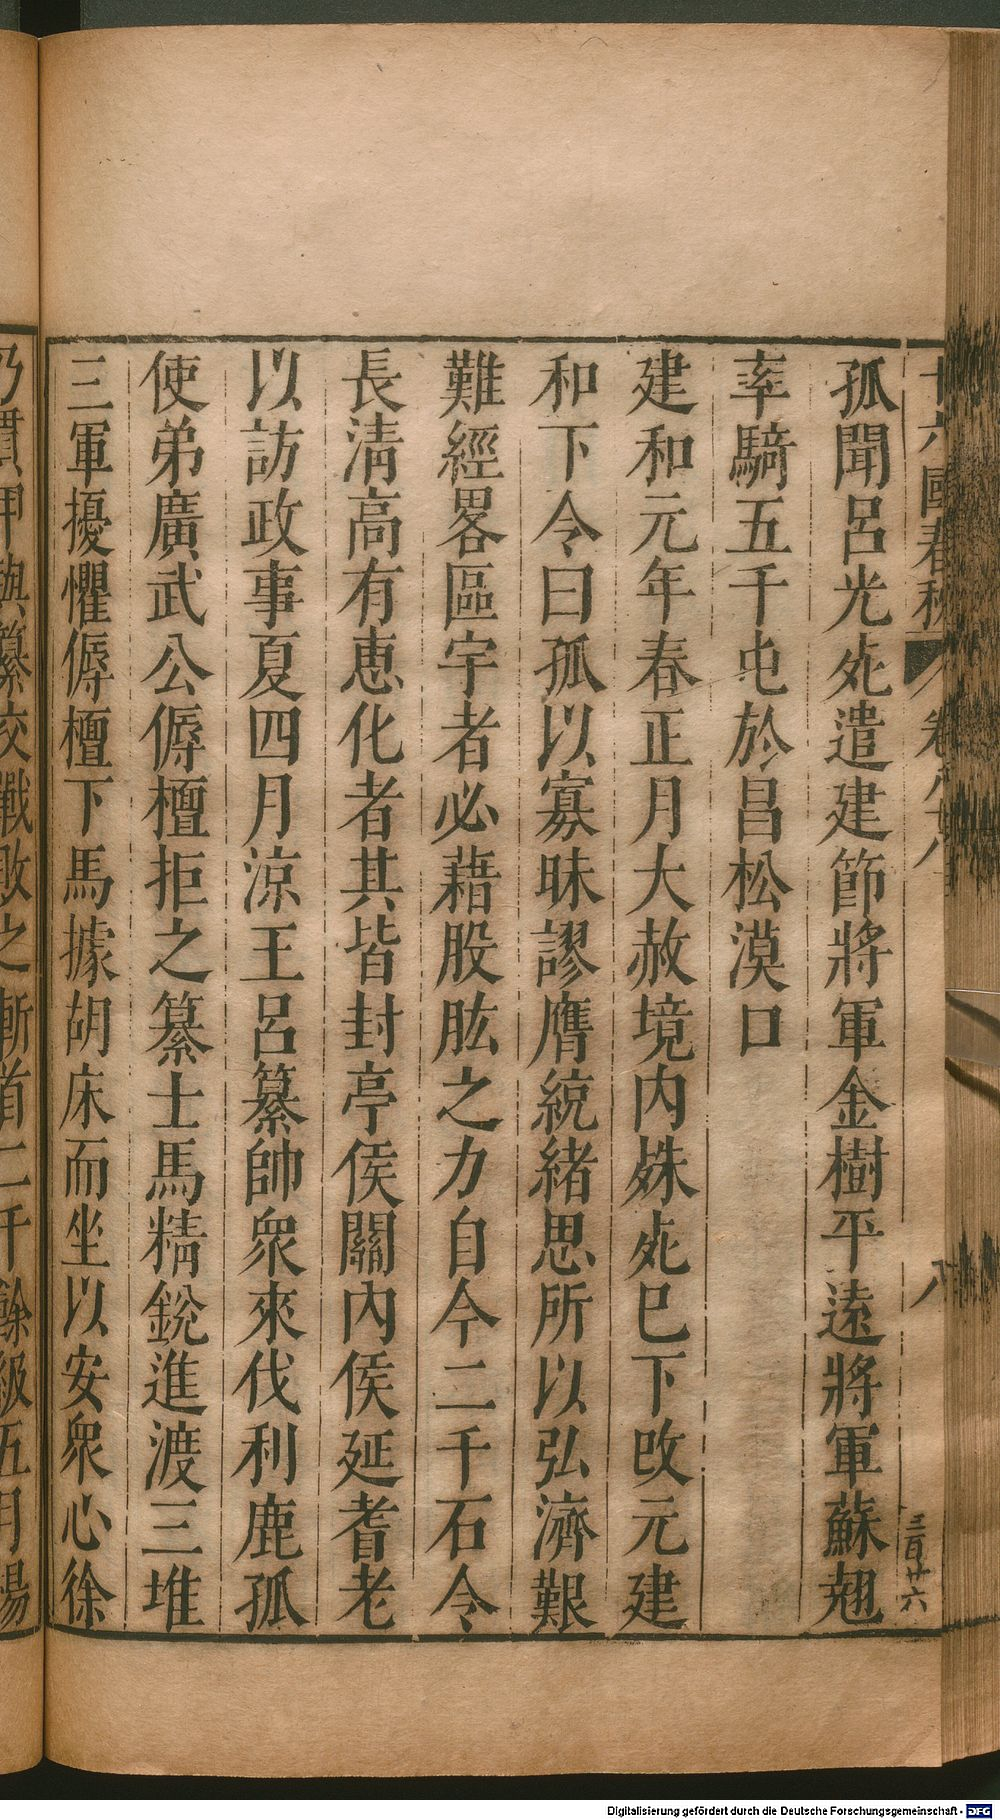 十六國春秋 卷八十八 八 三百廿六
孤聞呂光死遣建節將軍金樹平遠將軍蘇翹
率騎五千屯於昌松漠口
建和元年春正月大赦境内殊死巳下改元建
和下令曰孤以寡昧謬膺統緒思所以弘濟艱
難經畧區宇者必藉股肱之力自今二千石令
長清高有恵化者其皆封亭侯關內侯延耆老
以訪政事夏四月涼王呂纂帥衆來伐利鹿孤
使弟廣武公傉檀拒之纂士馬精銳進渡三堆
三軍擾懼傉檀下馬據胡床而坐以安衆心徐
乃貫甲與纂交戰敗之斬首二千餘級五月楊
Digitalisierung gefördert durch die Deutsche Forschungsgemeinschaft - DFG